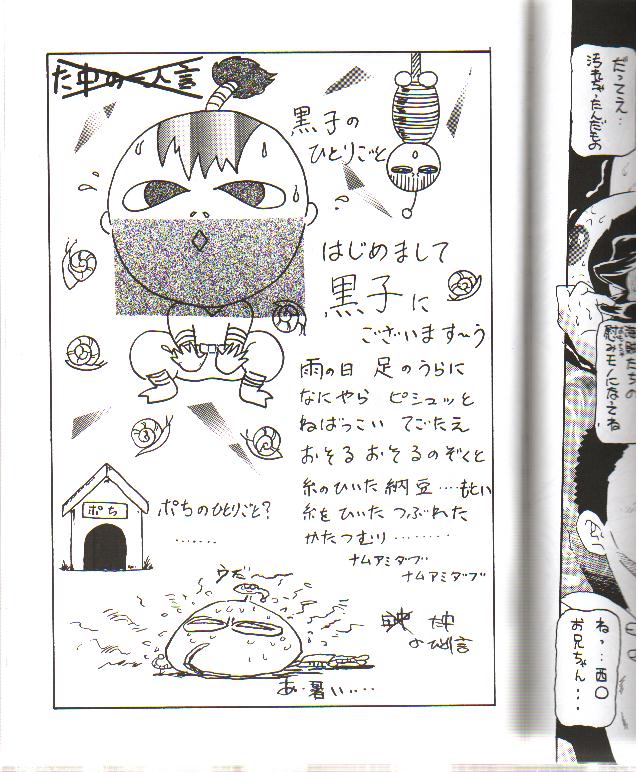 た中の一人言
黒子の
ひとりごと
はじめまして
黒子に
ございます〜う
雨の日 足のうらに
なにやら ピシュッと
ねばっこい てごたえ
おそる おそるのぞくと
糸のひいた 納豆‥‥もとい
糸をひいた つぶれた
かたつむり‥‥‥‥
ナムアミダブ
ナムアミダブ
ポち
ポちのひとりごと?
‥‥‥
うだ〜
た中
のひと言
あ・暑い‥‥
だってえ…
汚れちゃったんだもの
たちの
慰みモノになってね
ねっ…西〇
お兄ちゃん…